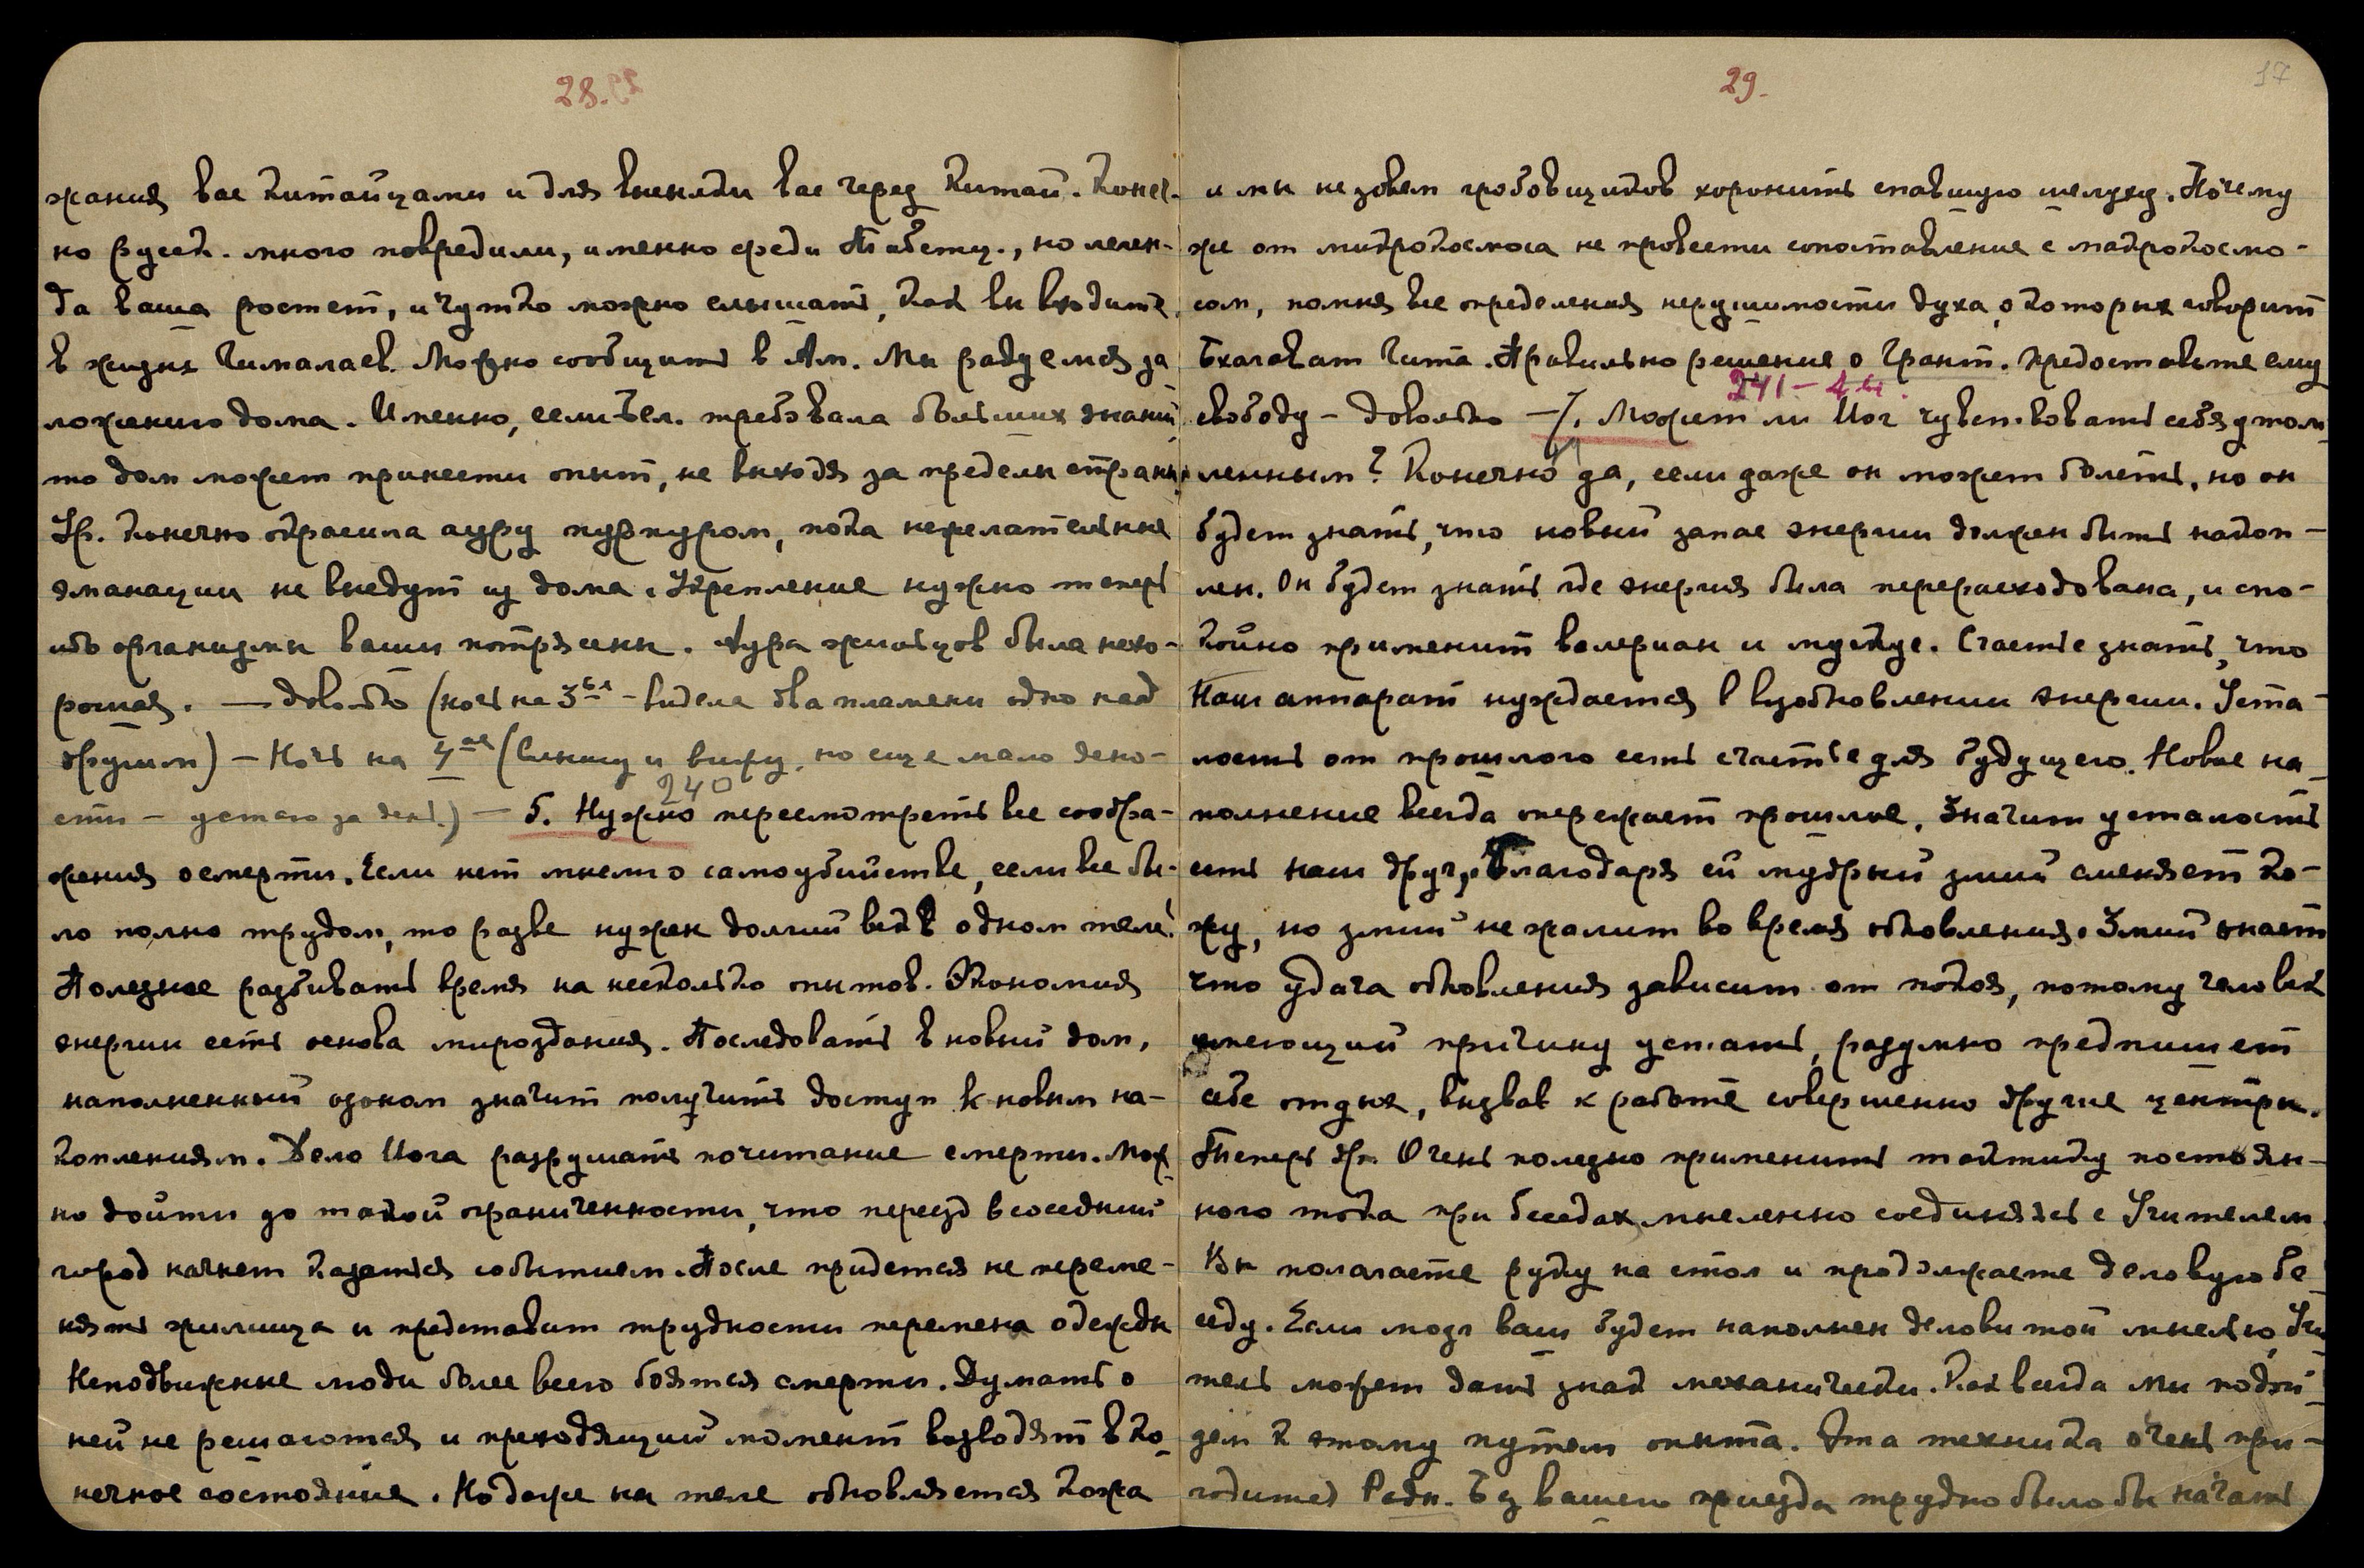 28.
жания вас Китайцами и для высылки вас через Китай. Конеч-
но русск. много повредили, именно среди Тибетц., но леген-
да ваша растет, и чутко можно слышать, как вы входите
в жизнь Гималаев. Можно сообщить в Ам. Мы радуемся за
ложению дома. Именно, если Бел. требовала больших знаний
то дом может принести опыт, не выходя за пределы страны.
Ур. конечно окрасила ауру пурпуром, пока нежелательные
эманации не выедут из дома. Укрепление нужно теперь
ибо организмы ваши потрясены. Аура жильцов была нехо-
рошая. — Довольно (ночь на 3ья - видела два пламени одно над
другим) — Ночь на 4ое (слышу и вижу, но еще мало ясно-
240
сти - устаю за день.) — 6. Нужно пересмотреть все сообра-
жения о смерти. Если нет мысли о самоубийстве, если все бы-
ло полно трудом, то разве нужен долгий век в одном теле!
Полезнее разбивать время на несколько опытов. Экономия
энергии есть основа мироздания. Последовать в новый дом,
наполненный озоном значит получить доступ к новым на-
коплениям. Дело Йога разрушать почитание смерти. Мож-
но дойти до такой ограниченности, что переезд в соседний
город начнет казаться событием. После придется не переме-
нять жилища и представит трудности перемена одежды
Неподвижные люди более всего боятся смерти. Думать о
ней не решаются и преходящий момент возводят в ко-
нечное состояние. Но даже на теле обновляется кожа
29.
17
и мы не зовем гробовщиков хоронить спавшую шелуху. Почему
же от микрокосмоса не провести сопоставление с макрокосмо-
сом, помня все определения нерушимости духа, о которых говорит
Бхагават Гита. Правильно решение о Грант. Предоставьте ему
241 - 4 ч.
свободу — Довольно — 7. Может ли Йог чувствовать себя утом-
ленным? Конечно да, если даже он может болеть, но он
будет знать, что новый запас энергии должен быть накоп-
лен. Он будет знать где энергия была перерасходована, и спо-
койно применит валериан и мускус. Счастье знать, что
Наш аппарат нуждается в возобновлении энергии. Уста-
лость от прошлого есть счастье для будущего. Новое на-
полнение всегда опережает прошлое. Значит усталость
есть наш друг, Благодаря ей мудрый змий сменяет ко-
жу, но змий не жалит во время обновления. Змий знает
что удача обновления зависит от покоя, потому человек
имеющий причину устать, разумно предпишет
себе отдых, вызвав к работе совершенно другие центры.
Теперь др. Очень полезно применить тактику постоян-
ного тока при беседах, мысленно соединяясь с Учителем.
Вы полагаете руку на стол и продолжаете деловую бе-
седу. Если мозг ваш будет наполнен деловитой мыслью, Учи-
тель может дать знак механически. Как всегда мы подой-
дем к этому путем опыта. Эта техника очень при-
годится Радн. Без вашего приезда трудно было бы начать